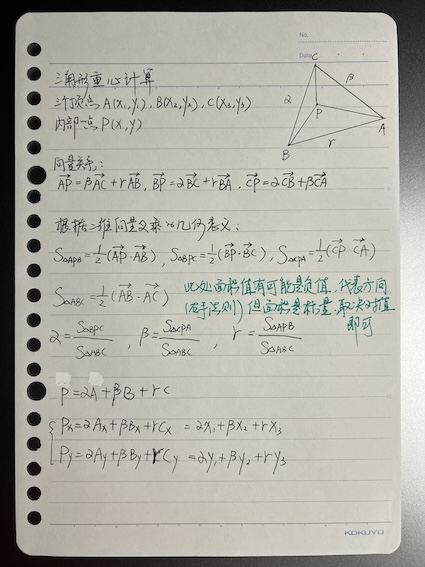 No.
Date
三角形重心计算
三个顶点 A(x₁,y₁), B(x₂,y₂), C(x₃,y₃)
内部一点 P(x,y)
C
β
α
P
A
B
r
向量关系:
AP⃗=βAC⃗+rAB⃗, BP⃗=αBC⃗+rBA⃗, CP⃗=αCB⃗+βCA⃗
根据二维向量叉乘的几何意义:
S△APB=½(AP⃗·AB⃗), S△BPC=½(BP⃗·BC⃗), S△CPA=½(CP⃗·CA⃗)
S△ABC=½(AB⃗·AC⃗)
此处面积值有可能是负值, 代表方向
(右手法则) 但面积是标量, 取绝对值
即可
α=S△BPC/S△ABC, β=S△CPA/S△ABC, r=S△APB/S△ABC
P=αA+βB+rC
Px=αAx+βBx+rCx =αx₁+βx₂+rx₃
Py=αAy+βBy+rCy =αy₁+βy₂+ry₃
KOKUYO